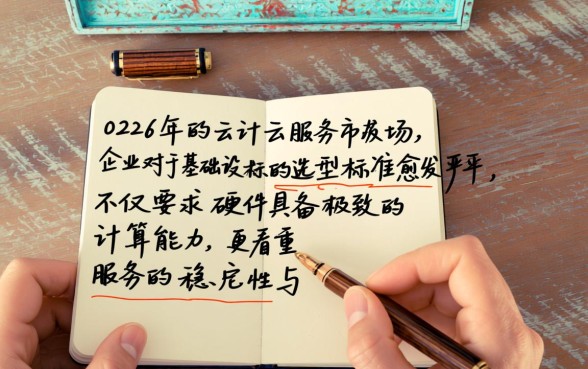 0226年的云计云服务市场,
企业对于基础设标的选型标准愈发严平,
不仅要求硬件具备极致的
计算能力,更看重
服务的稳定性与